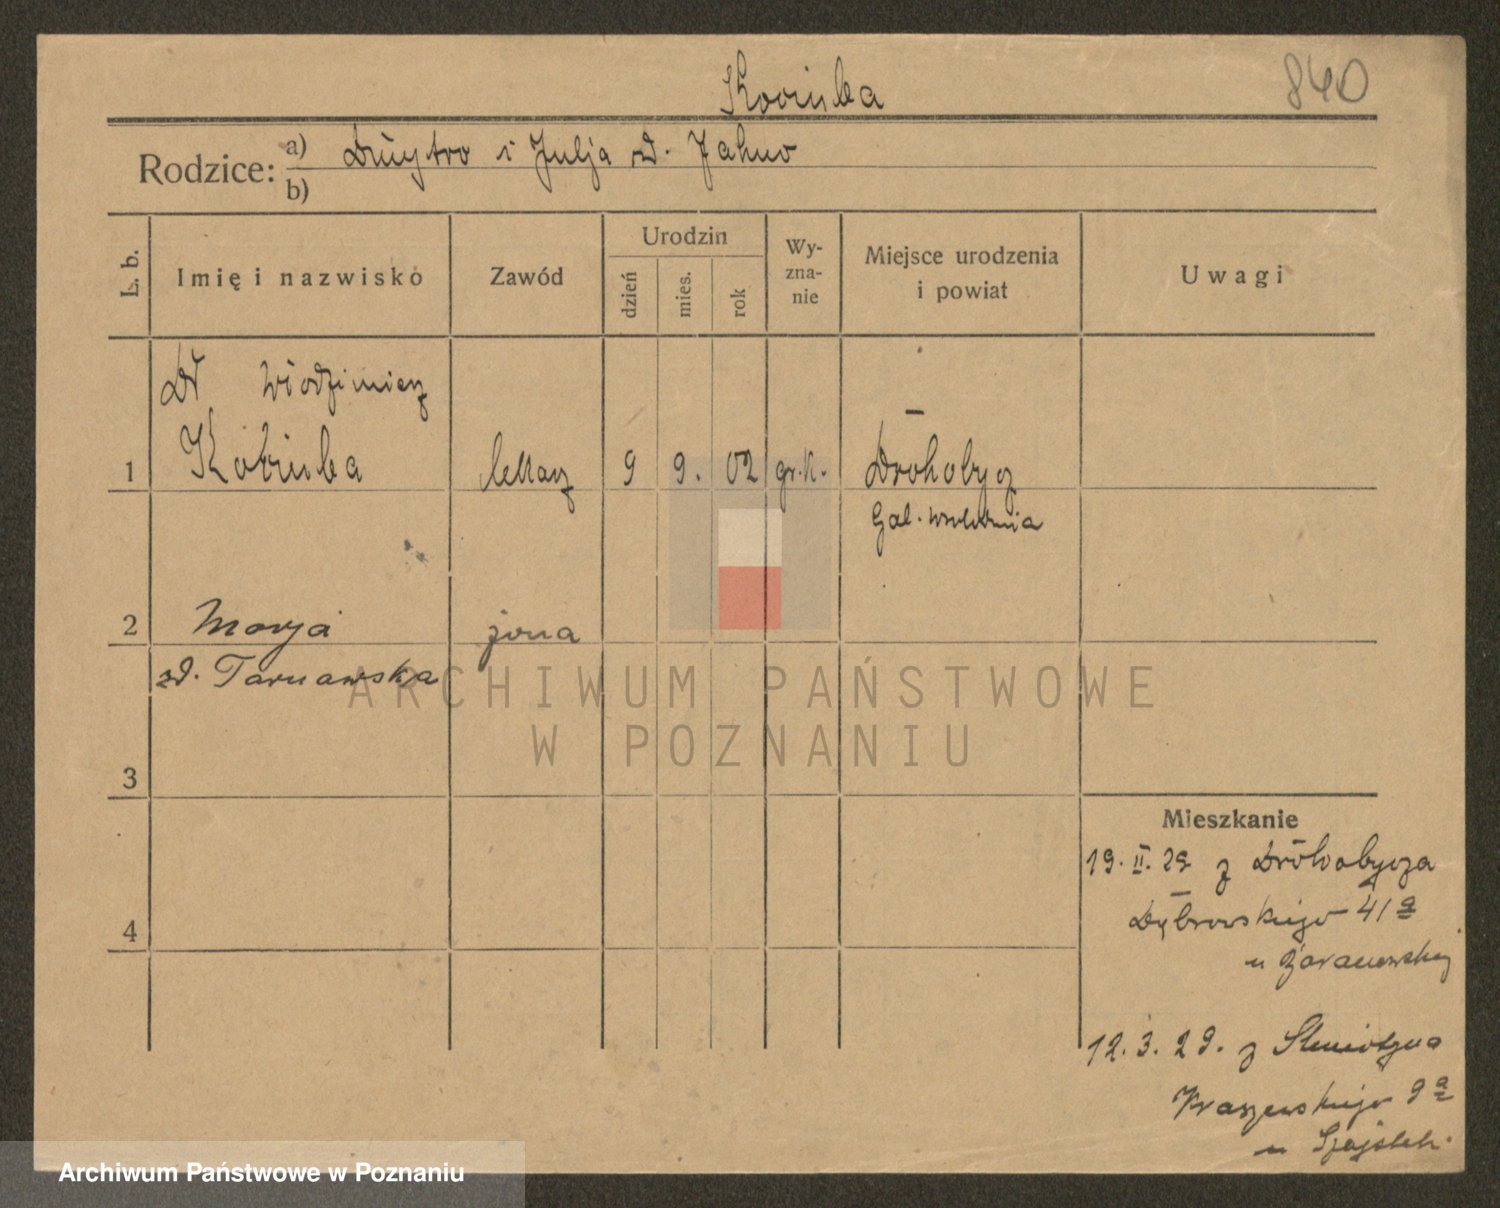 840
Rodzice: a) Dmytro i Julja zd. Jahno
b)
L. b.
Imię i nazwisko
Zawód
Urodzin
dzień
mies.
rok
Wy-
zna-
nie
Miejsce urodzenia
i powiat
Uwagi
Dr Włodzimierz
1 lekarz 9 9. 02 gr. k. Drohobycz
Gal. wschodnia
2 Marja żona
zd. Tarnawska
3
4
Mieszkanie
19. II. 29 z Drohobycza
Dąbrowskiego 41 a
u
12. 3. 29. z
Kraszewskiego 9 a
u
ARCHIWUM PAŃSTWOWE
W POZNANIU
Archiwum Państwowe w Poznaniu